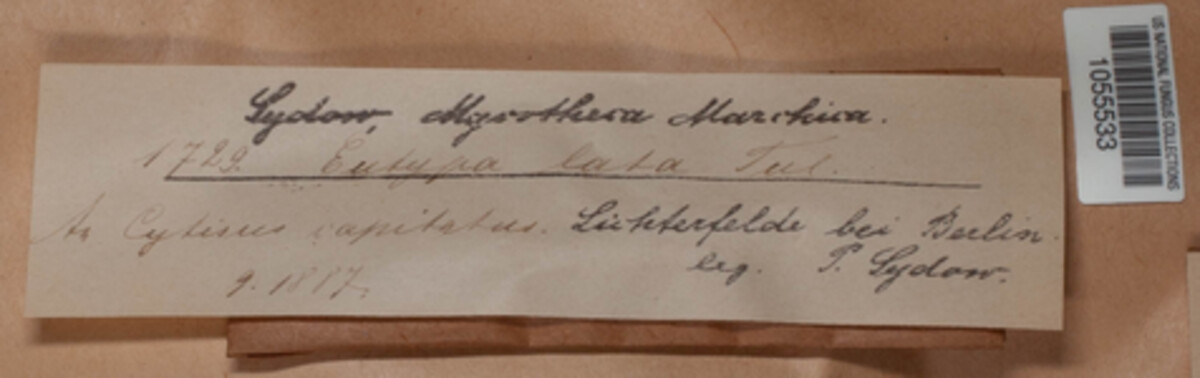 Sydow, Mycotheca Marchica.
1729. Eutypa lata Tul.
An Cytisus capitatus. Lichterfelde bei Berlin.
9. 1887. leg. P. Sydow.
US NATIONAL FUNGUS COLLECTIONS
1055533